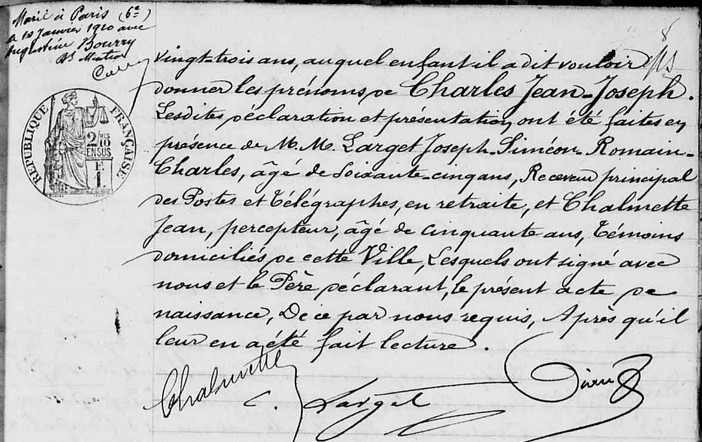 Marié à Paris (6e)
le 10 Janvier 1910 avec
Augustine Bourry
Dt Mention
8
vingt trois ans, auquel enfant il a dit vouloir
donner les prénoms de Charles Jean-Joseph.
Lesdites déclaration et présentation, ont été faites en
présence de M.M. Larget Joseph-Siméon-Romain-
Charles, âgé de Soixante-cinq ans, Receveur principal
des Postes et Télégraphes, en retraite, et Chalmette
Jean, percepteur, âgé de cinquante ans, Témoins
domiciliés de cette Ville, Lesquels ont signé avec
nous et le Père déclarant, le présent acte de
naissance, De ce par nous requis, Après qu'il
leur en a été fait lecture.
RÉPUBLIQUE FRANÇAISE
2/10
EN SUS
1 F.
Chalmette
C. Larget